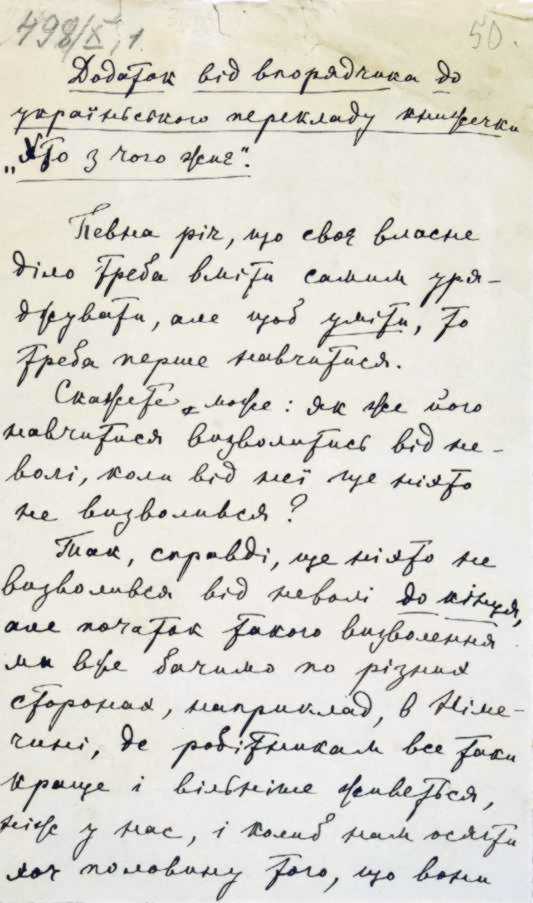 498/X, 1.
50.
Додаток від впорядчика до
українського перекладу книжечки
„Хто з чого жиє".
Певна річ, що своє власне
діло треба вміти самим уря-
джувати, але щоб уміти, то
треба перше навчитися.
Скажете може: як же його
навчитися визволитись від не-
волі, коли від неї ще ніхто
не визволився?
Так, справді, ще ніхто не
визволився від неволі до кінця,
але початок такого визволення
ми вже бачимо по різних
сторонах, наприклад, в Німе-
чині, де робітникам все таки
краще і вільніше живеться,
ніж у нас, і колиб нам осягти
хоч половину того, що вони